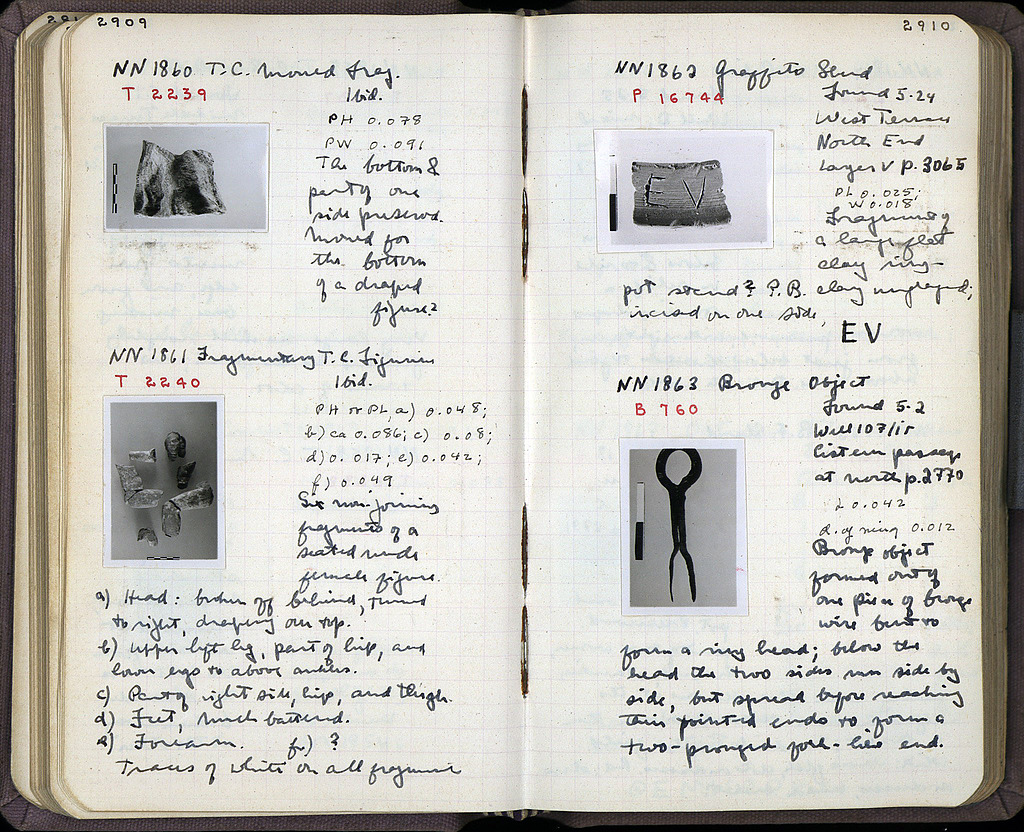 2909
NN 1860 T.C. Mould frag.
T 2239
Ibid.
PH 0.078
PW 0.091
The bottom &
part of one
side preserved.
Mould for
the bottom
of a draped
figure?
NN 1861 Fragmentary T.C. Figurine
T 2240
Ibid.
PH or PL, a) 0.048;
b) ca 0.086; c) 0.08;
d) 0.017; e) 0.042;
f) 0.049
Six non-joining
fragments of a
seated nude
female figure.
a) Head: broken off behind, turned
to right, draping on top.
b) Upper left leg, part of hip, and
lower legs to above ankles.
c) Part of right side, hip, and thigh.
d) Feet, much battered.
e) Forearm. f.) ?
Traces of white on all fragments
2910
NN 1862 Graffito Stand
P 16744
Found 5-24
West Terrace
North End
Layer V p. 3065
PL 0.025;
W 0.018
Fragment of
a large flat
clay ring-
pot stand? P.B. clay unglazed;
incised on one side,
EV
NN 1863 Bronze Object
B 760
Found 5-2
Well 107/ir
cistern passage
at north p. 2770
L 0.042
d. of ring 0.012
Bronze object
formed out of
one piece of bronze
wire bent to
form a ring head; below the
head the two sides run side by
side, but spread before reaching
their pointed ends to form a
two-pronged fork-like end.
EV